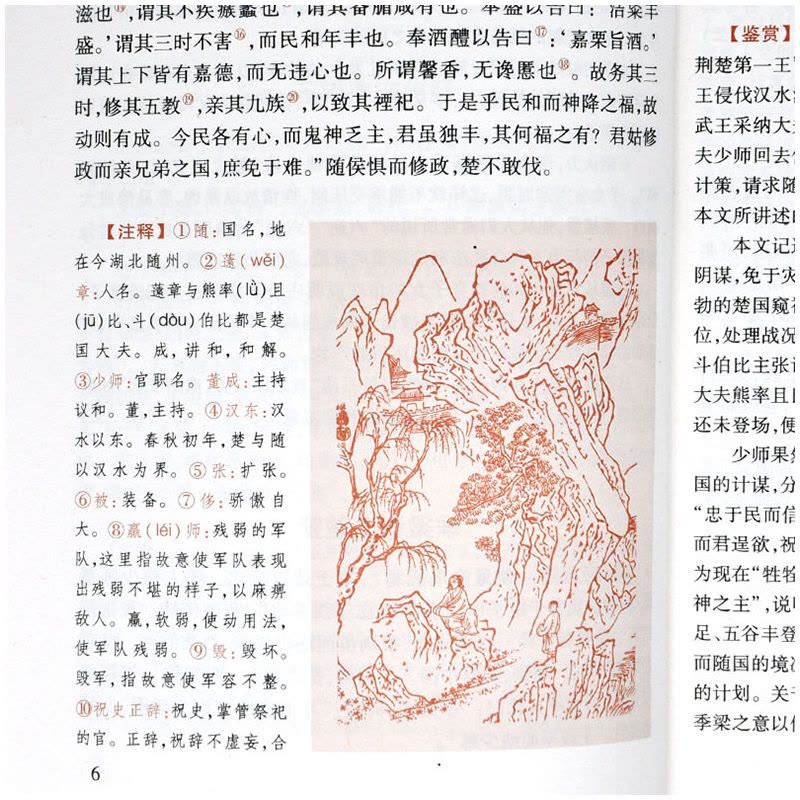 滋也⑭,谓其不疾瘯蠡也⑮,谓其备腯咸有也。奉盛以告曰:‘洁粢丰
盛。’谓其三时不害⑯,而民和年丰也。奉酒醴以告曰⑰:‘嘉栗旨酒。’
谓其上下皆有嘉德,而无违心也。所谓馨香,无谗慝也⑱。故务其三
时,修其五教⑲,亲其九族⑳,以致其禋祀。于是乎民和而神降之福,故
动则有成。今民各有心,而鬼神乏主,君虽独丰,其何福之有?君姑修
政而亲兄弟之国,庶免于难。”随侯惧而修政,楚不敢伐。
【注释】①随:国名,地
在今湖北随州。②薳(wěi)
章:人名。薳章与熊率(lǜ)且
(jū)比、斗(dòu)伯比都是楚
国大夫。成,讲和,和解。
③少师:官职名。董成:主持
议和。董,主持。④汉东:汉
水以东。春秋初年,楚与随
以汉水为界。⑤张:扩张。
⑥被:装备。⑦侈:骄傲自
大。⑧羸(léi)师:残弱的军
队,这里指故意使军队表现
出残弱不堪的样子,以麻痹
敌人。羸,软弱,使动用法,
使军队残弱。⑨毁:毁坏。
毁军,指故意使军容不整。
⑩祝史正辞:祝史,掌管祭祀
的官。正辞,祝辞不虚妄,合
6
【鉴赏】
荆楚第一王
王侵伐汉水
武王采纳大
夫少师回去
计策,请求随
本文所讲述的
本文记述
阴谋,免于灾
勃的楚国窥
位,处理战况
斗伯比主张
大夫熊率且比
还未登场,便
少师果然
国的计谋,分
“忠于民而信
而君逞欲,祝
为现在“牲牷
神之主”,说
足、五谷丰登
而随国的境况
的计划。关于
季梁之意以